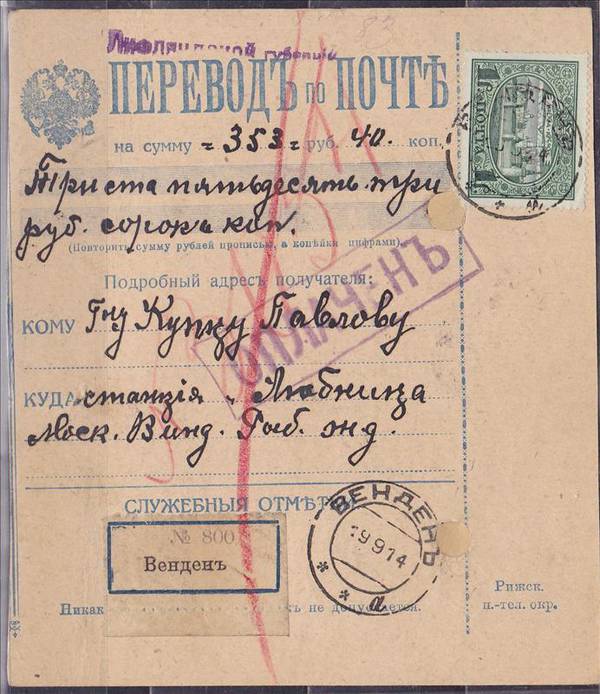 Лифляндской губернiи
ПЕРЕВОДЪ по ПОЧТѢ
на сумму = 353 = руб. 40. коп.
Триста пятьдесятъ три
руб. сорокъ коп.
(Повторить сумму рублей прописью, а копѣйки цифрами).
Подробный адресъ получателя:
КОМУ Гну Купцу Павлову
ОПЛАЧЕНЪ
КУДА станцiя „ Любница
Моск. Винд. Рыб. жд.
СЛУЖЕБНЫЯ ОТМѢТ
ВЕНДЕНЪ
19 9 14
* * а *
№ 800
Венденъ
Никак къ не допускается.
Рижск.
п.-тел. окр.